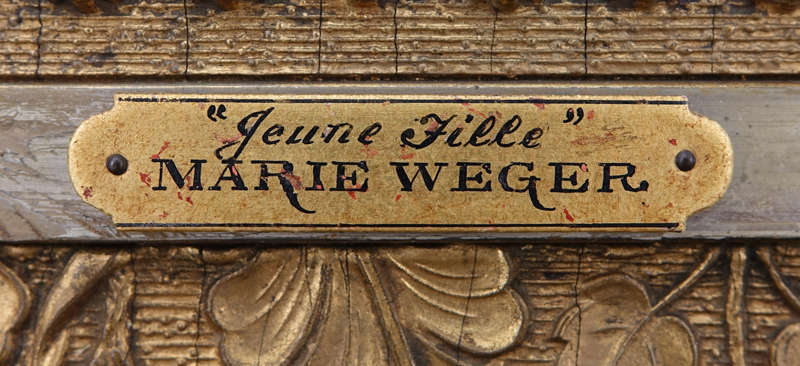 "Jeune Fille"
MARIE WEGER